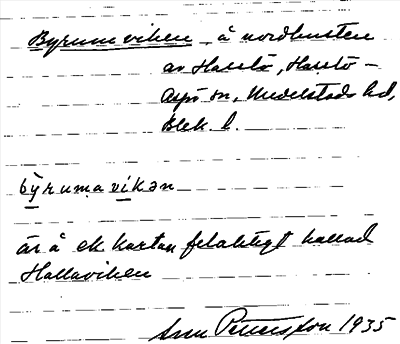 Byrumviken å nordkusten
av Hasslö, Hasslö-
Aspö sn, Medelstads hd,
Blek. l.
byrumavikən
är å ek kartan felaktigt kallad
Hallaviken
Pettersson 1935